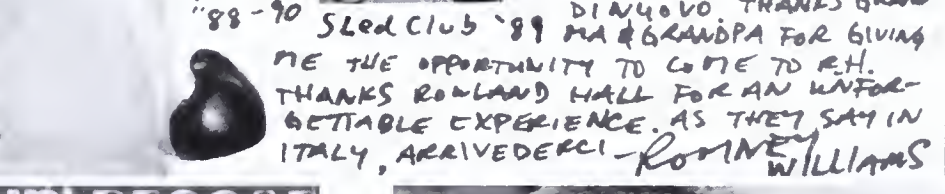 "88-90 Sled Club '89 DINUOVO. THANKS GRAND
MA & GRANDPA FOR GIVING
ME THE OPPORTUNITY TO COME TO R.H.
THANKS ROWLAND HALL FOR AN UNFOR-
GETTABLE EXPERIENCE. AS THEY SAY IN
ITALY, ARRIVEDERCI - RODNEY WILLIAMS